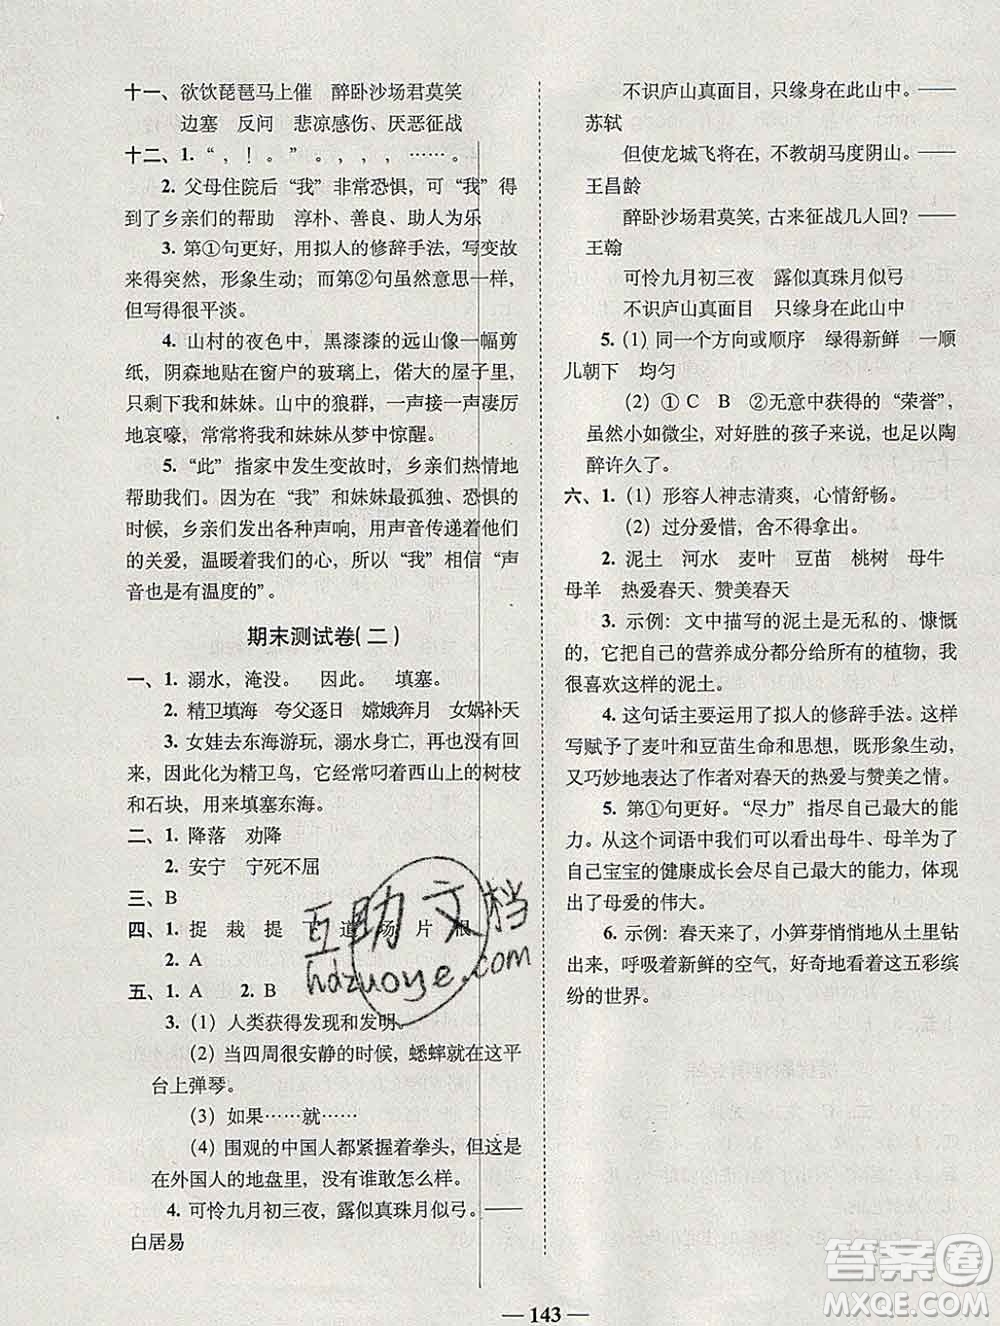 十一、欲饮琵琶马上催　醉卧沙场君莫笑
边塞　反问　悲凉感伤、厌恶征战
十二、1.“，！。”。，，，……。
2. 父母住院后“我”非常恐惧，可“我”得
到了乡亲们的帮助　淳朴、善良、助人为乐
3. 第①句更好，用拟人的修辞手法，写变故
来得突然，形象生动；而第②句虽然意思一样，
但写得很平淡。
4. 山村的夜色中，黑漆漆的远山像一幅剪
纸，阴森地贴在窗户的玻璃上，偌大的屋子里，
只剩下我和妹妹。山中的狼群，一声接一声凄厉
地哀嚎，常常将我和妹妹从梦中惊醒。
5.“此”指家中发生变故时，乡亲们热情地
帮助我们。因为在“我”和妹妹最孤独、恐惧的
时候，乡亲们发出各种声响，用声音传递着他们
的关爱，温暖着我们的心，所以“我”相信“声
音也是有温度的”。
期末测试卷(二)
一、1. 溺水，淹没。　因此。　填塞。
2. 精卫填海　夸父逐日　嫦娥奔月　女娲补天
3. 女娃去东海游玩，溺水身亡，再也没有回
来，因此化为精卫鸟，它常常叼着西山上的树枝
和石块，用来填塞东海。
二、1. 降落　劝降
2. 安宁　宁死不屈
三、B
四、1. 捉　栽　提　下　道　场　片　根
2. A
五、1. A　2. B
3.(1) 人类获得发现和发明。
(2) 当四周很安静的时候，蟋蟀就在这平
台上弹琴。
(3) 如果……就……
(4) 围观的中国人都紧握着拳头，但这是
在外国人的地盘里，没有谁敢怎么样。
4. 可怜九月初三夜，露似真珠月似弓。——
白居易
不识庐山真面目，只缘身在此山中。——
苏轼
但使龙城飞将在，不教胡马度阴山。——
王昌龄
醉卧沙场君莫笑，古来征战几人回？——
王翰
可怜九月初三夜　露似真珠月似弓
不识庐山真面目　只缘身在此山中
5.(1) 同一个方向或顺序　绿得新鲜　一顺
儿朝下　均匀
(2) ①C　B　②无意中获得的“荣誉”，
虽然小如微尘，对好胜的孩子来说，却足以陶
醉许久了。
六、1.(1) 形容人神志清爽，心情舒畅。
(2) 过分爱惜，舍不得拿出。
2. 泥土　河水　麦叶　豆苗　桃树　母牛
母羊　热爱春天、赞美春天
3. 示例：文中描写的泥土是无私的、慷慨
的，它把自己的营养成分给了所有的植物，我
很喜欢这样的泥土。
4. 这句话主要运用了拟人的修辞手法。这样
写赋予了麦叶和豆苗生命和思想，既形象生动，
又巧妙地表达了作者对春天的热爱与赞美之情。
5. 第①句更好。“尽力”指尽自己最大的能
力。从这个词语中我们可以看出母牛、母羊为了
自己宝宝的健康成长会尽自己最大的能力，体现
了母爱的伟大。
6. 示例：春天来了，小笋芽悄悄地从土里钻
出来，呼吸着新鲜的空气，好奇地看着这五彩缤
纷的世界。
互助文档
hdzuoye.com
答案圈
MXQE.COM
— 143 —